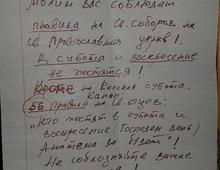 Молим Вас соблюдат
правила на Св. Соборов на
Св. Православния церкв!
В субота и воскресение
не постятся!
на Великия субота.
Канон:
56 Правило на Св. отцов:
"Кто постят в субота и
воскресение (Господен день)
Анатема да будет"!
Не соблазняйте